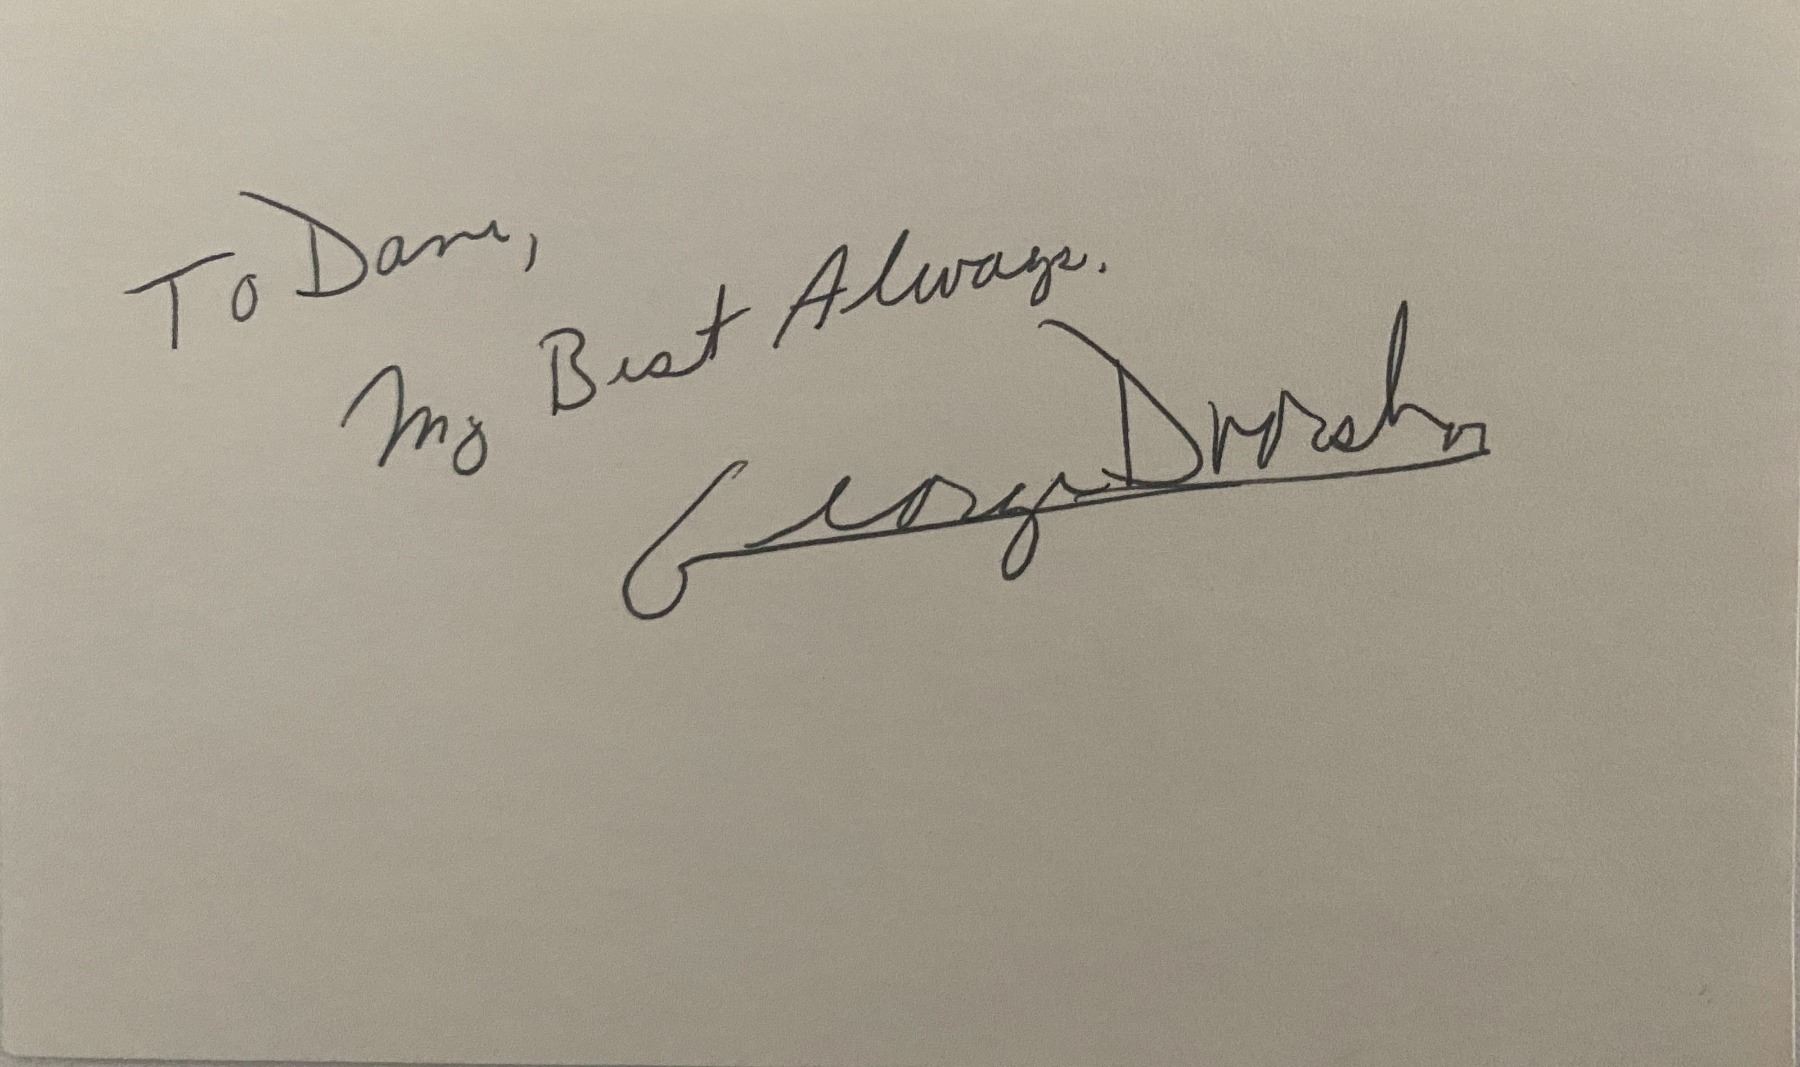 To Dave,
My Best Always.
George Dvorsky